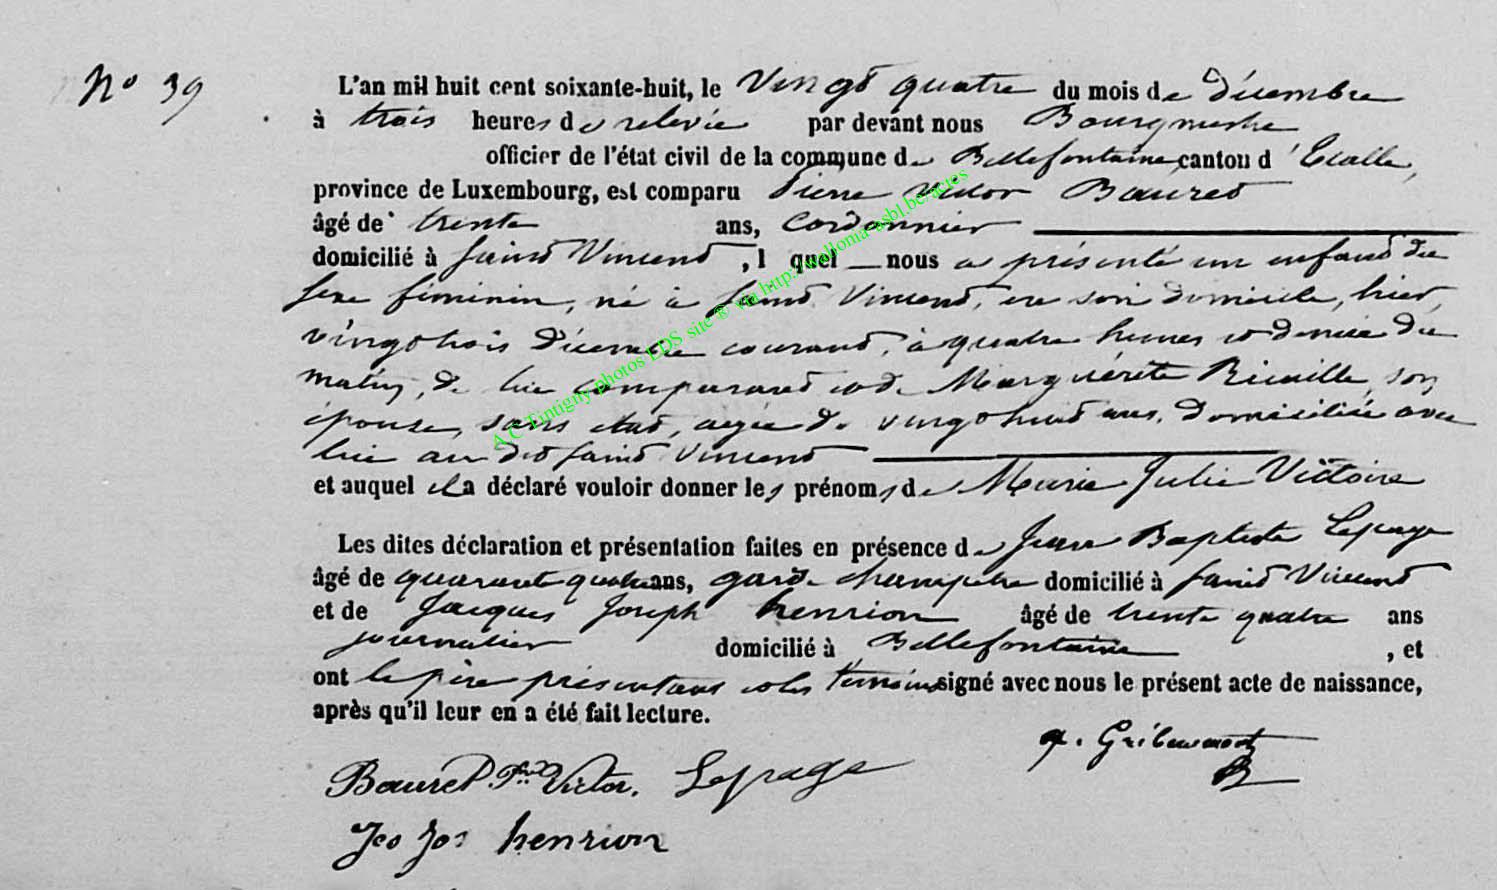 No 39
L'an mil huit cent soixante-huit, le Vingt quatre du mois de Décembre
à trois heures de relevée par devant nous Bourgmestre
officier de l'état civil de la commune de Bellefontaine, canton d'Etalle,
province de Luxembourg, est comparu Pierre Victor Bauret
âgé de trente ans, Cordonnier
domicilié à Saint Vincent, lequel nous a présenté un enfant du
sexe féminin, né à Saint Vincent, en son domicile, hier,
vingt trois Décembre courant, à quatre heures et demie du
matin, de lui comparant et de Marguérite Ricaille, son
épouse, sans état, agée de vingt huit ans, domiciliée avec
lui au dit Saint Vincent
et auquel il a déclaré vouloir donner les prénoms de Marie Julie Victoire
Les dites déclaration et présentation faites en présence de Jean Baptiste Lepage
âgé de quarante quatre ans, garde champêtre domicilié à Saint Vincent
et de Jacques Joseph henrion âgé de trente quatre ans
journalier domicilié à Bellefontaine, et
ont le père présentant et les témoins signé avec nous le présent acte de naissance,
après qu'il leur en a été fait lecture.
Bauret Pre Victor. Lepage
Jos henrion
A.C Tintigny photos LDS site ® via http://wallonia-asbl.be/actes